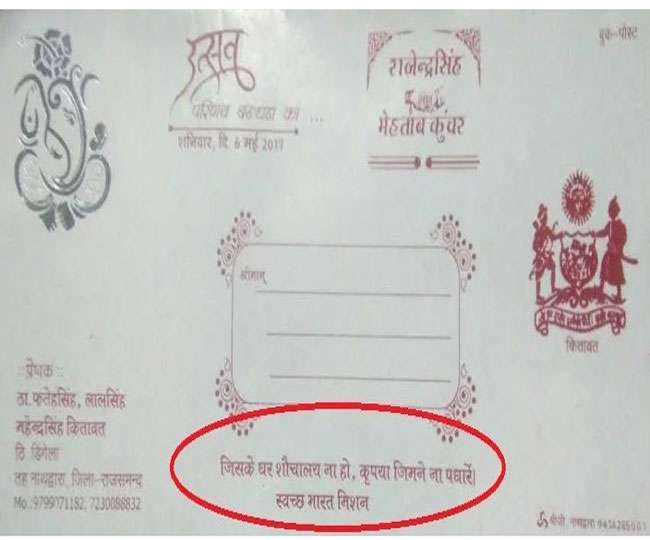 उत्सव
परिणय बन्धन का ...
शनिवार, दि. 6 मई 2017
राजेन्द्रसिंह
मेहताब कुंवर
बुक-पोस्ट
श्रीमान्
कितावत
::प्रेषक ::
ठा. फतेहसिंह, लालसिंह
महेन्द्रसिंह कितावत
ठि. डिंगेला
तह नाथद्वारा, जिला-राजसमन्द
Mo.:9799171182, 7230086832
जिसके घर शौचालय ना हो, कृपया जिमने ना पधारें।
स्वच्छ भारत मिशन
नाथद्वारा